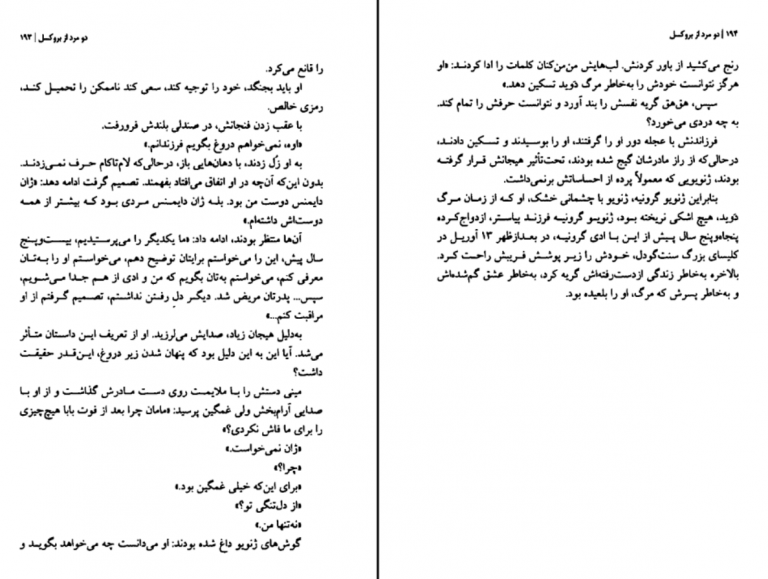 دو مرد از بروکسل | ۱۹۳
را قانع می‌کرد.
او باید بجنگد، خود را توجیه کند، سعی کند ناممکن را تحمیل کند،
رمزی خالص.
با عقب زدن فنجانش، در صندلی بلندش فرورفت.
«اوه، نمی‌خواهم دروغ بگویم فرزندانم.»
به او زُل زدند، با دهان‌هایی باز، درحالی‌که لام‌تاکام حرف نمی‌زدند.
بدون این‌که آن‌چه در او اتفاق می‌افتاد بفهمند. تصمیم گرفت ادامه دهد: «ژان
دایمنس دوست من بود. بله ژان دایمنس مردی بود کـه بیشتر از همـه
دوست‌اش داشته‌ام.»
آن‌ها منتظر بودند، ادامه داد: «ما یکدیگر را می‌پرستیدیم، بیست‌وپنج
سال پیش، این را می‌خواستم برایتان توضیح دهم، می‌خواستم او را به‌تان
معرفی کنم، می‌خواستم به‌تان بگویم که من و ادی از هم جدا می‌شویم،
سپس... پدرتان مریض شد. دیگر دلِ رفتن نداشتم، تصمیم گرفتم از او
مراقبت کنم...»
به‌دلیل هیجان زیاد، صدایش می‌لرزید. او از تعریف ایـن داستان متـأثر
می‌شد. آیا این به این دلیل بود که پنهان شدن زیر دروغ، این‌قدر حقیقت
داشت؟
مینی دستش را بـا ملایمت روی دست مـادرش گذاشت و از او بـا
صدایی آرام‌بخش ولی غمگین پرسید: «مامان چرا بعد از فوت بابا هیچ‌چیزی
را برای ما فاش نکردی؟»
«ژان نمی‌خواست.»
«چرا؟»
«برای این‌که خیلی غمگین بود.»
«از دل‌تنگی تو؟»
«نه‌تنها من.»
گوش‌های ژنویو داغ شده بودند: او می‌دانست چه می‌خواهد بگویـد و
۱۹۴ | دو مرد از بروکسل
رنج می‌کشید از باور کردنش. لب‌هایش من‌من‌کنان کلمات را ادا کردنـد: «او
هرگز نتوانست خودش را به‌خاطر مرگ دَوید تسکین دهد.»
سپس، هق‌هق گریه نفسش را بند آورد و نتوانست حرفش را تمام کند.
به چه دردی می‌خورد؟
فرزندانش با عجله دور او را گرفتند، او را بوسیدند و تسکین دادنـد،
درحالی‌که از راز مادرشان گیج شده بودند، تحت‌تأثیر هیجانش قرار گرفتـه
بودند، ژنویویی که معمولاً پرده از احساساتش برنمی‌داشت.
بنابراین ژنویو گرونیه، ژنویو با چشمانی خشک، او کـه از زمـان مـرگ
دَوید، هیچ اشکی نریخته بـود، ژنویـو گرونیـه فرزند پیاستر، ازدواج‌کرده
پنجاه‌وپنج سال پیش از ایـن بـا ادی گرونیـه، در بعدازظهر ۱۳ آوریـل در
کلیسای بزرگ سنت‌گودل، خودش را زیـر پوشش فریبش راحـت کـرد.
بالاخره به‌خاطر زندگی ازدست‌رفته‌اش گریه کرد، به‌خاطر عشق گم‌شده‌اش
و به‌خاطر پسرش که مرگ، او را بلعیده بود.